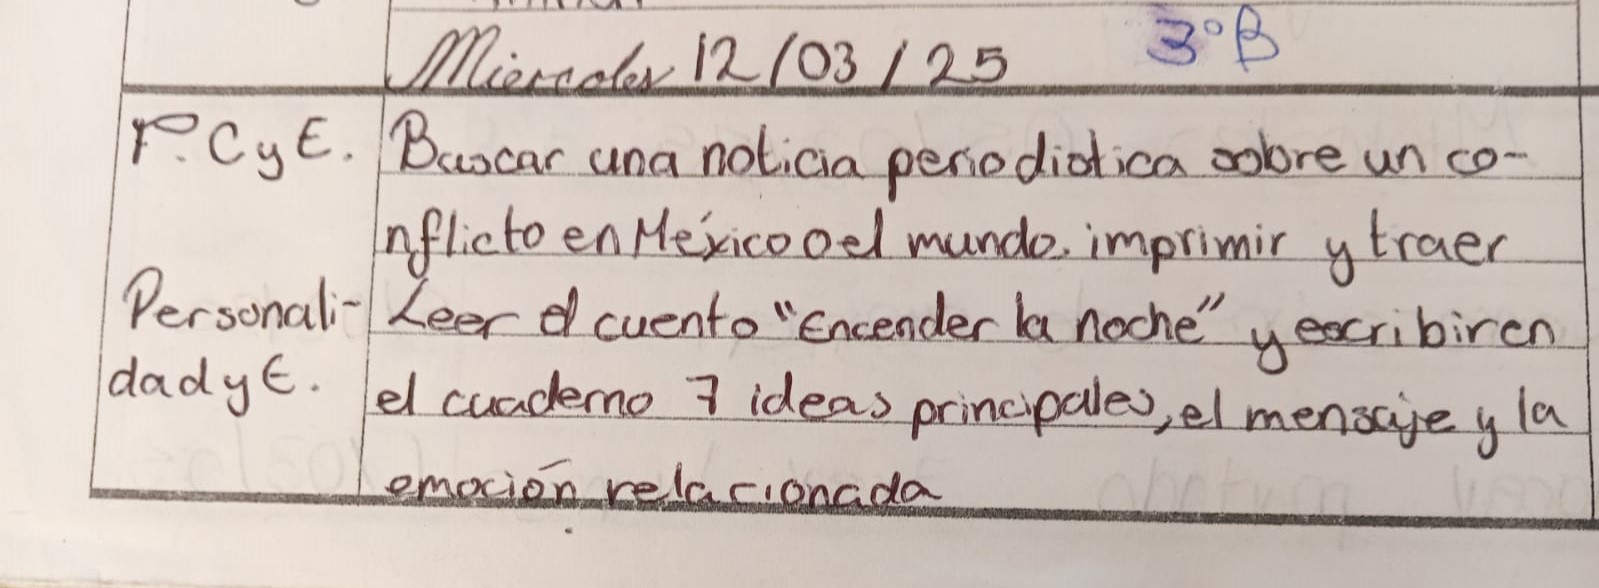 Miércoles 12/03/25 3°B
F. C y E. Buscar una noticia periodistica sobre un co-
nflicto en México o el mundo. imprimir y traer
Personali- Leer el cuento "Encender la noche" y escribir en
dad y E. el cuaderno 7 ideas principales, el mensaje y la
emoción relacionada